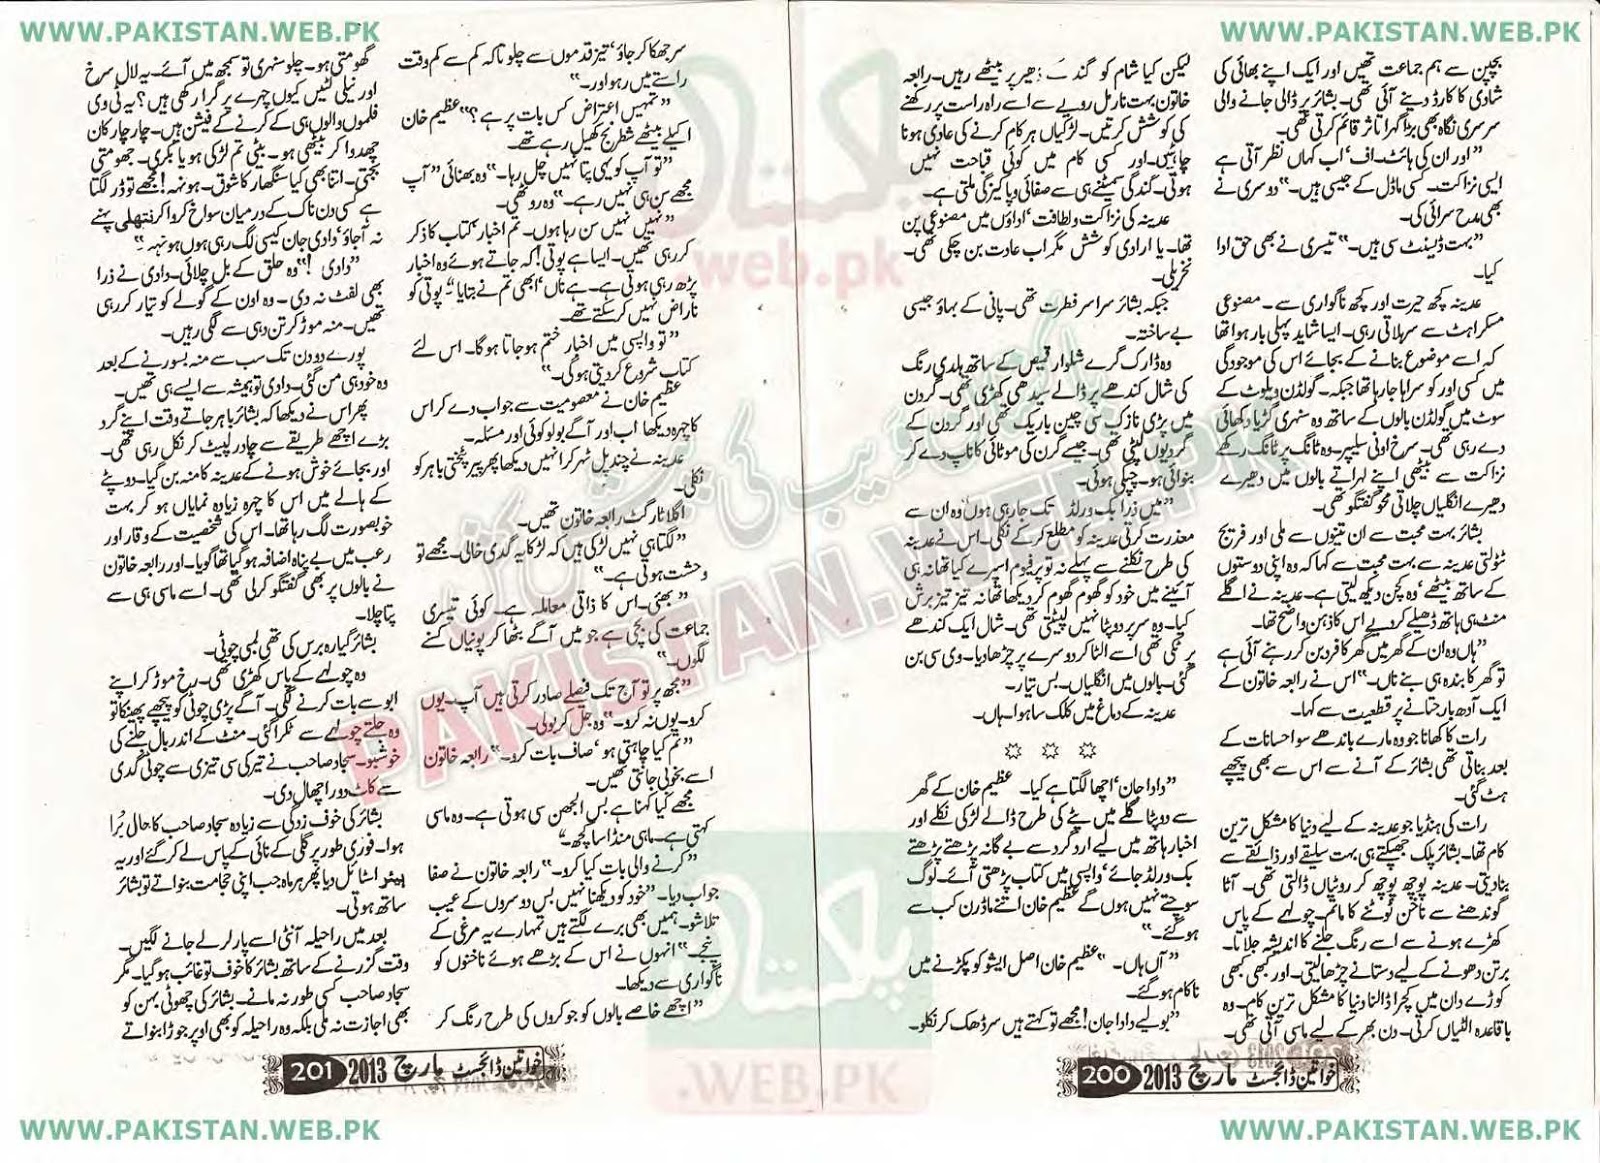 WWW.PAKISTAN.WEB.PK
WWW.PAKISTAN.WEB.PK
بچپن سے ہم جماعت تھیں اور ایک اپنے بھائی کی
شادی کا کارڈ دینے آئی تھی۔ بشائر پر ڈالی جانے والی
سرسری نگاہ بھی بڑا گہرا تاثر قائم کرتی تھی۔
"اور ان کی ہائٹ۔ اف' اب کہاں نظر آتی ہے
ایسی نزاکت۔ کسی ماڈل کے جیسی ہیں۔" دوسری نے
بھی مدح سرائی کی۔
"بہت ڈیسنٹ سی ہیں۔" تیسری نے بھی حق ادا
کیا۔
عدینہ کچھ حیرت اور کچھ ناگواری سے۔ مصنوعی
مسکراہٹ سے سر ہلاتی رہی۔ ایسا شاید پہلی بار ہوا تھا
کہ اسے موضوع بنانے کے بجائے اس کی موجودگی
میں کسی اور کو سراہا جا رہا تھا جبکہ۔ گولڈن ویلوٹ کے
سوٹ میں گولڈن بالوں کے ساتھ وہ سنہری گڑیا دکھائی
دے رہی تھی۔ سرخ اونی سلیپر۔ وہ ٹانگ پر ٹانگ رکھے
نزاکت سے بیٹھی اپنے لہراتے بالوں میں دھیرے
دھیرے انگلیاں چلاتی محو گفتگو تھی۔
بشائر بہت محبت سے ان تینوں سے ملی اور فریج
ٹٹولتی عدینہ سے بہت محبت سے کہا کہ وہ اپنی دوستوں
کے ساتھ بیٹھے' وہ کچن دیکھ لیتی ہے۔ عدینہ نے اگلے
منٹ ہی ہاتھ ڈھیلے کر دیے اس کا ذہن واضح تھا۔
"ہاں وہ ان کے گھر میں گھر کا فرد بن کر رہنے آئی ہے
تو گھر کا بندہ ہی بنے ناں۔" اس نے رابعہ خاتون کے
ایک آدھ بار جتانے پر قطعیت سے کہا۔
رات کا کھانا جو وہ مارے باندھے سو احسانات کے
بعد بناتی تھی بشائر کے آنے سے اس سے بھی پیچھے
ہٹ گئی۔
رات کی ہنڈیا جو عدینہ کے لیے دنیا کا مشکل ترین
کام تھا۔ بشائر پلک جھپکتے ہی بہت سلیقے اور ذائقے سے
بنا دیتی۔ عدینہ پوچھ پوچھ کر روٹیاں ڈالتی تھی۔ آٹا
گوندھنے سے ناخن ٹوٹنے کا ماتم۔ چولہے کے پاس
کھڑے ہونے سے اسے رنگ جلنے کا اندیشہ جلاتا۔
برتن دھونے کے لیے دستانے چڑھا لیتی۔ اور کبھی کبھی
کوڑے دان میں کچرا ڈالنا دنیا کا مشکل ترین کام۔ وہ
باقاعدہ الٹیاں کرتی۔ دن بھر کے لیے ماسی آتی تھی۔
لیکن کیا شام کو گند کے ڈھیر پر بیٹھے رہیں۔ رابعہ
خاتون بہت نارمل رویے سے اسے راہ راست پر رکھنے
کی کوشش کرتیں۔ لڑکیاں ہر کام کرنے کی عادی ہونا
چاہئیں۔ اور کسی کام میں کوئی قباحت نہیں
ہوتی۔ گندگی سمیٹنے ہی سے صفائی و پاکیزگی ملتی ہے۔
عدینہ کی نزاکت و لطافت' اداؤں میں مصنوعی پن
تھا۔ یا ارادی کوشش مگر اب عادت بن چکی تھی۔
نخریلی۔
جبکہ بشائر سراسر فطرت تھی۔ پانی کے بہاؤ جیسی
بے ساختہ۔
وہ ڈارک گرے شلوار قمیص کے ساتھ ہلدی رنگ
کی شال کندھے پر ڈالے سیدھی کھڑی تھی۔ گردن
میں پڑی نازک سی چین باریک تھی اور گردن کے
گرد یوں لپٹی تھی۔ جیسے گردن کی موٹائی کا ناپ دے کر
بنوائی ہو۔ چپکی ہوئی۔
"میں ذرا بک ورلڈ تک جا رہی ہوں" وہ ان سے
معذرت کرتی عدینہ کو مطلع کرکے نکلی۔ اس نے عدینہ
کی طرح نکلنے سے پہلے نہ تو پرفیوم اسپرے کیا تھا نہ ہی
آئینے میں خود کو گھوم گھوم کر دیکھا تھا نہ تیز تیز برش
کیا۔ وہ سر پر دوپٹا نہیں لپیٹتی تھی۔ شال ایک کندھے
پر ٹکی تھی اسے الٹا کر دوسرے پر چڑھا دیا۔ وی سی بن
گئی۔ بالوں میں انگلیاں۔ بس تیار۔
عدینہ کے دماغ میں کلک سا ہوا۔ ہاں۔
☼ ☼ ☼
"دادا جان' اچھا لگتا ہے کیا۔ عظیم خان کے گھر
سے دوپٹا گلے میں پٹے کی طرح ڈالے لڑکی نکلے اور
اخبار ہاتھ میں لیے ارد گرد سے بے گانہ پڑھتے پڑھتے
بک ورلڈ جائے' واپسی میں کتاب پڑھتی آئے۔ لوگ
سوچتے نہیں ہوں گے عظیم خان اتنے ماڈرن کب سے
ہو گئے۔"
"آں ہاں۔" عظیم خان اصل ایشو کو پکڑنے میں
ناکام ہو گئے۔
"بولیے دادا جان! مجھے تو کہتے ہیں سر ڈھک کر نکلو۔
خواتین ڈائجسٹ مارچ 2013 200
سر جھکا کر جاؤ' تیز قدموں سے چلو تاکہ کم سے کم وقت
راستے میں رہو اور۔"
"تمہیں اعتراض کس بات پر ہے؟" عظیم خان
اکیلے بیٹھے شطرنج کھیل رہے تھے۔
"تو آپ کو یہی پتا نہیں چل رہا۔" وہ بھنائی "آپ
مجھے سن ہی نہیں رہے۔" وہ روٹھی۔
"نہیں نہیں سن رہا ہوں۔ تم اخبار' کتاب کا ذکر
کر رہی تھیں۔ ایسا ہے پوتی! کہ جاتے ہوئے وہ اخبار
پڑھ رہی ہوتی ہے۔ ہے ناں' ابھی تم نے بتایا" پوتی کو
ناراض نہیں کر سکتے تھے۔
"تو واپسی میں اخبار ختم ہو جاتا ہوگا۔ اس لئے
کتاب شروع کر دیتی ہوگی۔"
عظیم خان نے معصومیت سے جواب دے کر اس
کا چہرہ دیکھا اب اور آگے بولو کوئی اور مسئلہ۔
عدینہ نے چند پل ٹھہر کر انہیں دیکھا پھر پیر پٹختی باہر کو
نکلی۔
اگلا ٹارگٹ رابعہ خاتون تھیں۔
"لگتا ہی نہیں لڑکی ہیں کہ لڑکا یہ گدی خالی۔ مجھے تو
وحشت ہوتی ہے۔"
"بھئی۔ اس کا ذاتی معاملہ ہے۔ کوئی تیسری
جماعت کی بچی ہے جو میں آگے بٹھا کر پونیاں کسنے
لگوں۔"
"مجھ پر تو آج تک فیصلے صادر کرتی ہیں آپ۔ یوں
کرو۔ یوں نہ کرو۔" وہ جل کر بولی۔
"تم کیا چاہتی ہو' صاف بات کرو۔" رابعہ خاتون
اسے بخوبی جانتی تھیں۔
"مجھے کیا کہنا ہے بس الجھن سی ہوتی ہے۔ وہ ماسی
کہتی ہے۔ ماہی منڈا سا کچھ۔"
"کرنے والی بات کیا کرو۔" رابعہ خاتون نے صفا
جواب دیا۔ "خود کو دیکھنا نہیں بس دوسروں کے عیب
تلاشو۔ ہمیں بھی برے لگتے ہیں تمہارے یہ مرغی کے
پنجے۔" انہوں نے اس کے بڑھے ہوئے ناخنوں کو
ناگواری سے دیکھا۔
"اچھے خاصے بالوں کو جوکروں کی طرح رنگ کر
گھومتی ہو۔ چلو سنہری تو سمجھ میں آئے۔ یہ لال سرخ
اور نیلی لٹیں کیوں چہرے پر گرا رکھی ہیں؟ یہ ٹی وی
فلموں والوں ہی کے کرنے کے فیشن ہیں۔ چار چار کان
چھدوا کر بیٹھی ہو۔ بیٹی تم لڑکی ہو یا بکری۔ جھومتی
بجتی۔ اتنا بھی کیا سنگھار کا شوق۔ ہونہہ! مجھے تو ڈر لگتا
ہے کسی دن ناک کے درمیان سوراخ کروا کر نتھلی پہنے
نہ آجاؤ' دادی جان کیسی لگ رہی ہوں ہونہہ"
"دادی!" وہ حلق کے بل چلائی۔ دادی نے ذرا
بھی لفٹ نہ دی۔ وہ اون کے گولے کو تیار کر رہی
تھیں۔ منہ موڑ کر تن دہی سے لگی رہیں۔
پورے دو دن تک سب سے منہ بسورنے کے بعد
وہ خود ہی من گئی۔ دادی تو ہمیشہ سے ایسے ہی تھیں۔
پھر اس نے دیکھا کہ بشائر باہر جاتے وقت اپنے گرد
بڑے اچھے طریقے سے چادر لپیٹ کر نکل رہی تھی۔
اور بجائے خوش ہونے کے عدینہ کا منہ بن گیا۔ دوپٹے
کے ہالے میں اس کا چہرہ زیادہ نمایاں ہو کر بہت
خوبصورت لگ رہا تھا۔ اس کی شخصیت کے وقار اور
رعب میں بے پناہ اضافہ ہو گیا تھا گویا۔ اور رابعہ خاتون
نے بالوں پر بھی گفتگو کر لی تھی۔ اسے ماسی ہی سے
پتا چلا۔
بشائر گیارہ برس کی تھی لمبی چوٹی۔
وہ چولہے کے پاس کھڑی تھی۔ رخ موڑ کر اپنے
ابو سے بات کرنے لگی۔ آگے پڑی چوٹی کو پیچھے پھینکا تو
وہ جلتے چولہے سے ٹکرا گئی۔ منٹ کے اندر بال جلنے کی
خوشبو۔ سجاد صاحب نے تیر کی سی تیزی سے چوٹی گدی
سے کاٹ دور اچھال دی۔
بشائر کی خوف زدگی سے زیادہ سجاد صاحب کا حال برا
ہوا۔ فوری طور پر گلی کے نائی کے پاس لے کر گئے اور یہ
ہیئر اسٹائل دیا پھر ہر ماہ جب اپنی حجامت بنواتے تو بشائر
ساتھ ہوتی۔
بعد میں راحیلہ آنٹی اسے پارلر لے جانے لگیں۔
وقت گزرنے کے ساتھ بشائر کا خوف تو غائب ہو گیا۔ مگر
سجاد صاحب کسی طور نہ مانے۔ بشائر کی چھوٹی بہن کو
بھی اجازت نہ ملی بلکہ وہ راحیلہ کو بھی اوپر جوڑا بنواتے
خواتین ڈائجسٹ مارچ 2013 201
PAKISTAN.WEB.PK
پاکستان
.web.pk
پاکستان
.WEB.PK
WWW.PAKISTAN.WEB.PK
WWW.PAKISTAN.WEB.PK